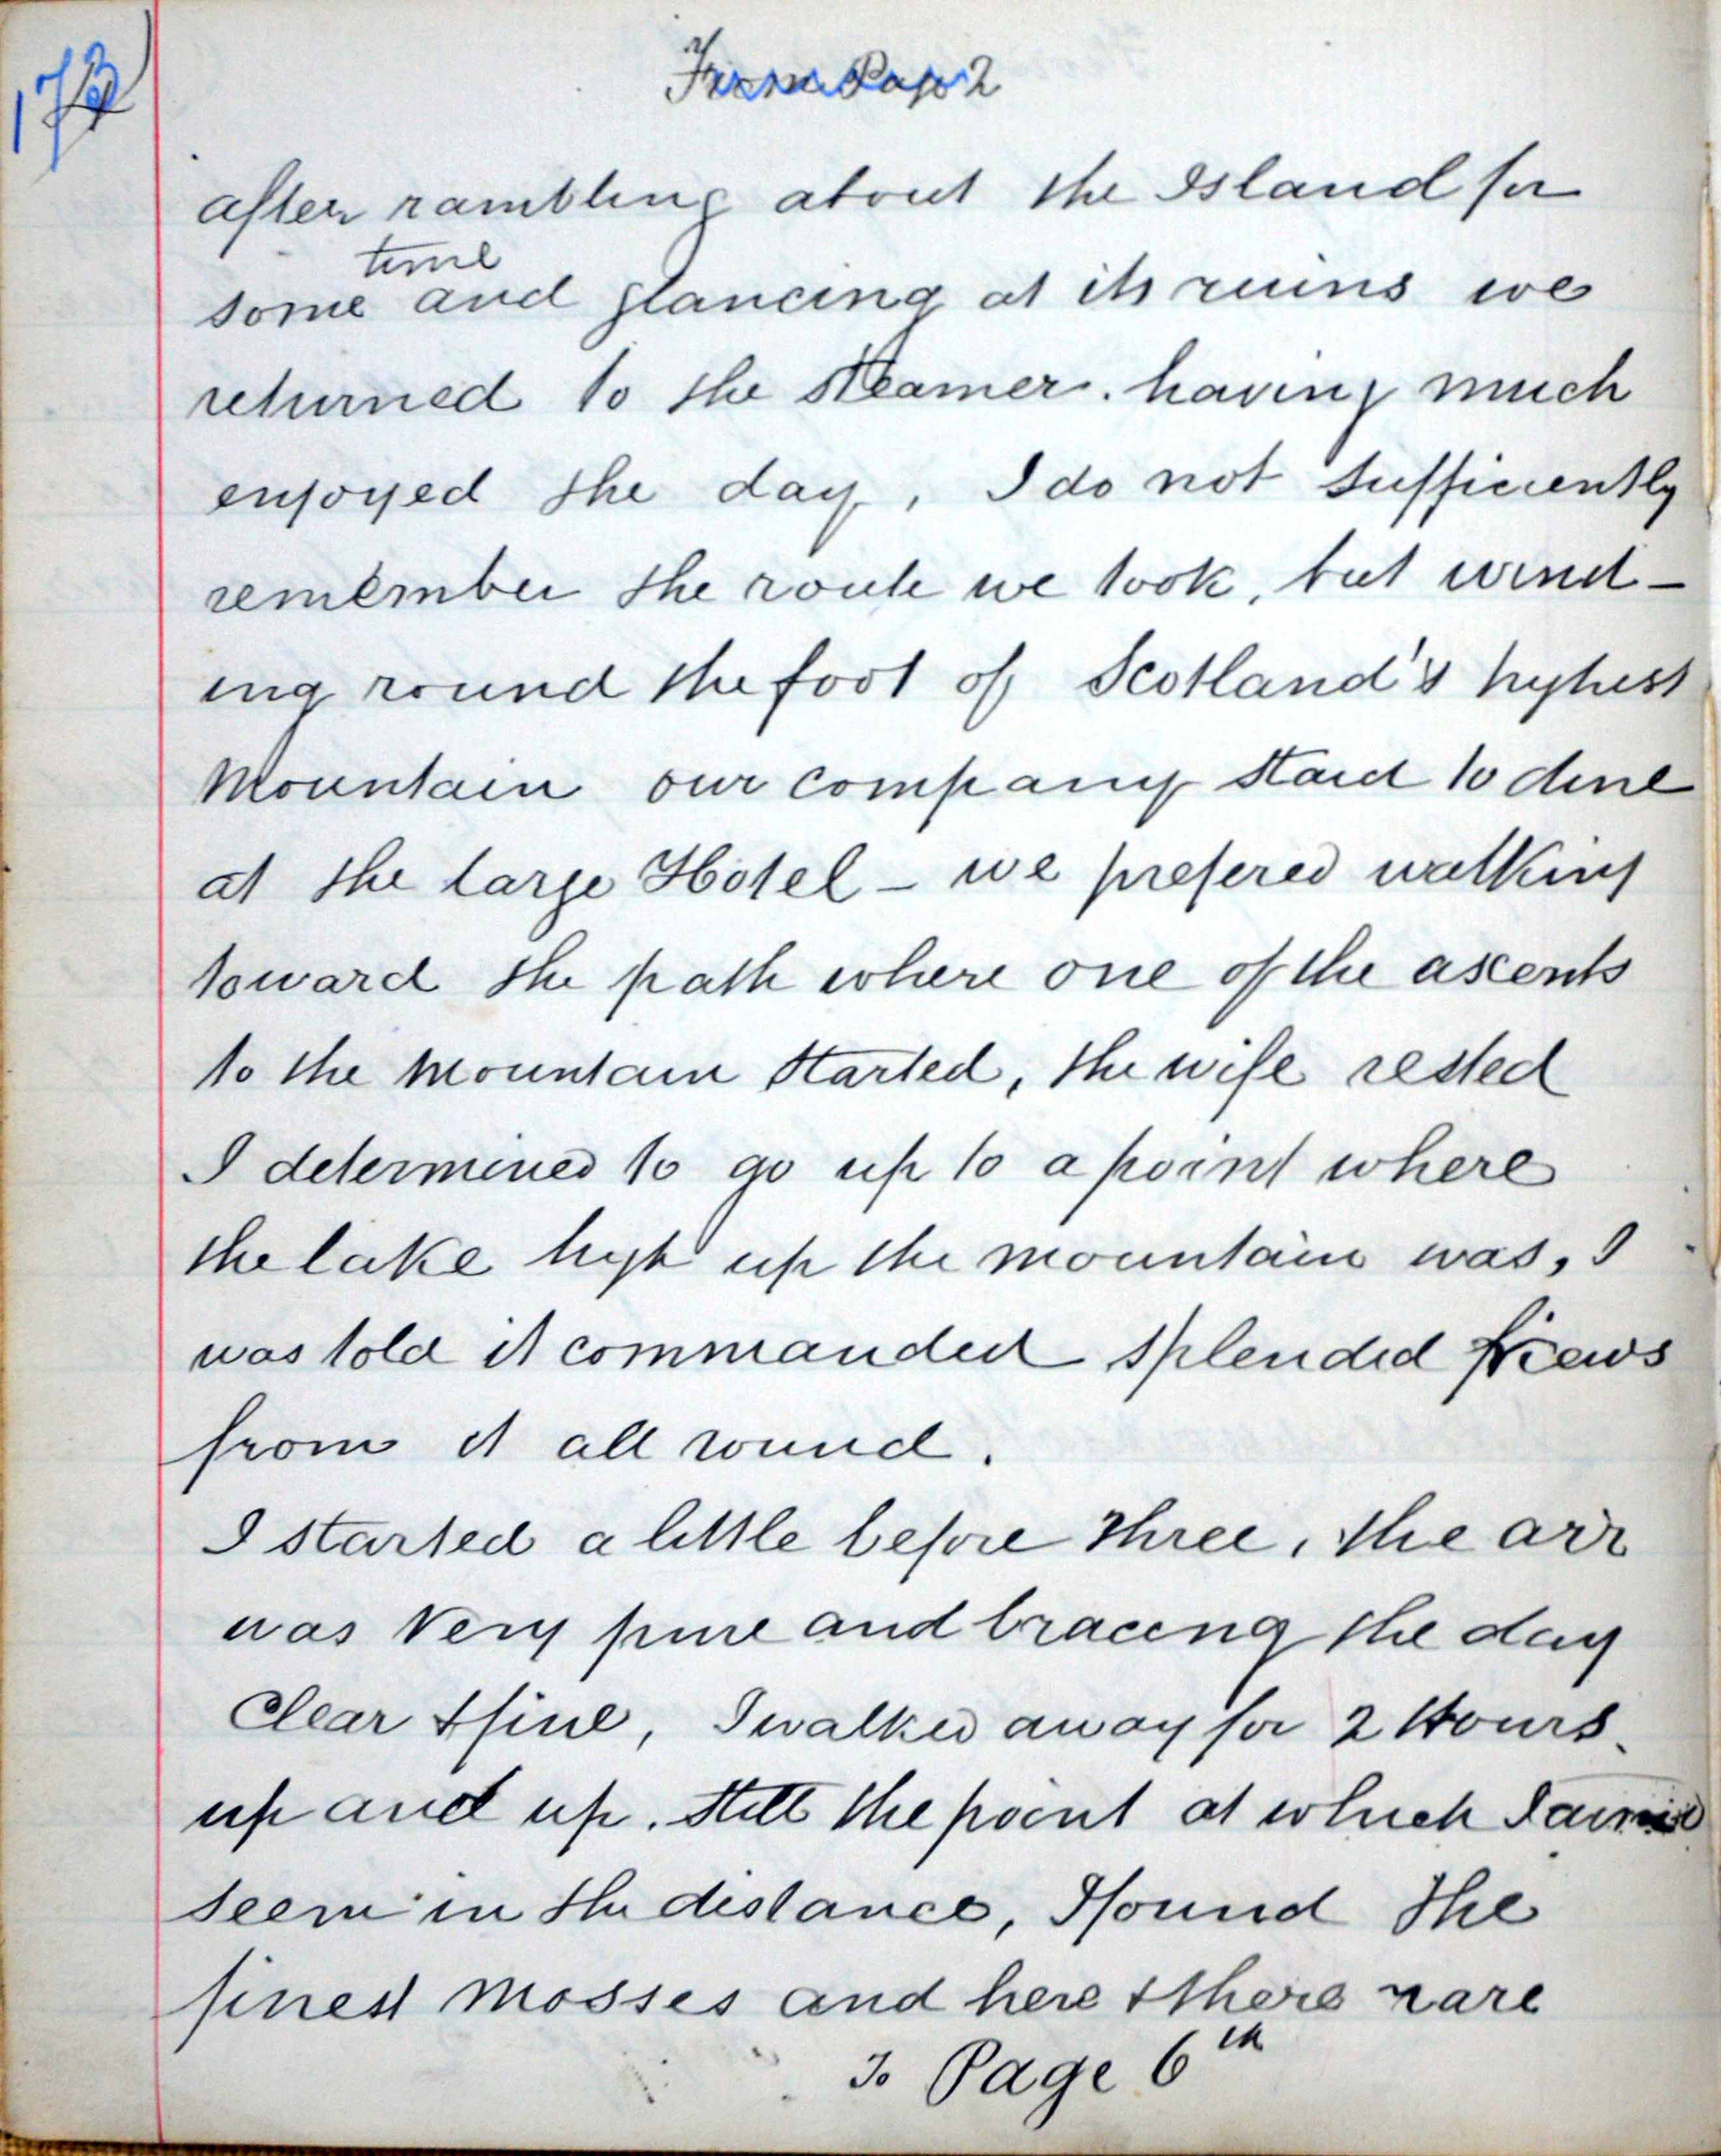 From Page 2
after rambling about the Island for
time
some and glancing at its ruins we
returned to the steamer. having much
enjoyed the day, I do not sufficiently
remember the route we took, but wind-
ing round the foot of Scotland's highest
Mountain our company staid to dine
at the large Hotel - we prefered walking
toward the path where one of the ascents
to the mountain started, the wife rested
I determined to go up to a point where
the lake high up the mountain was, I
was told it commanded splended Views
from it all round.
I started a little before three, the air
was very pure and bracing the day
Clear & fine, I walked away for 2 Hours
up and up. Still the point at which I aimed
seem in the distance, I found the
finest mosses and here & there rare
To Page 6th